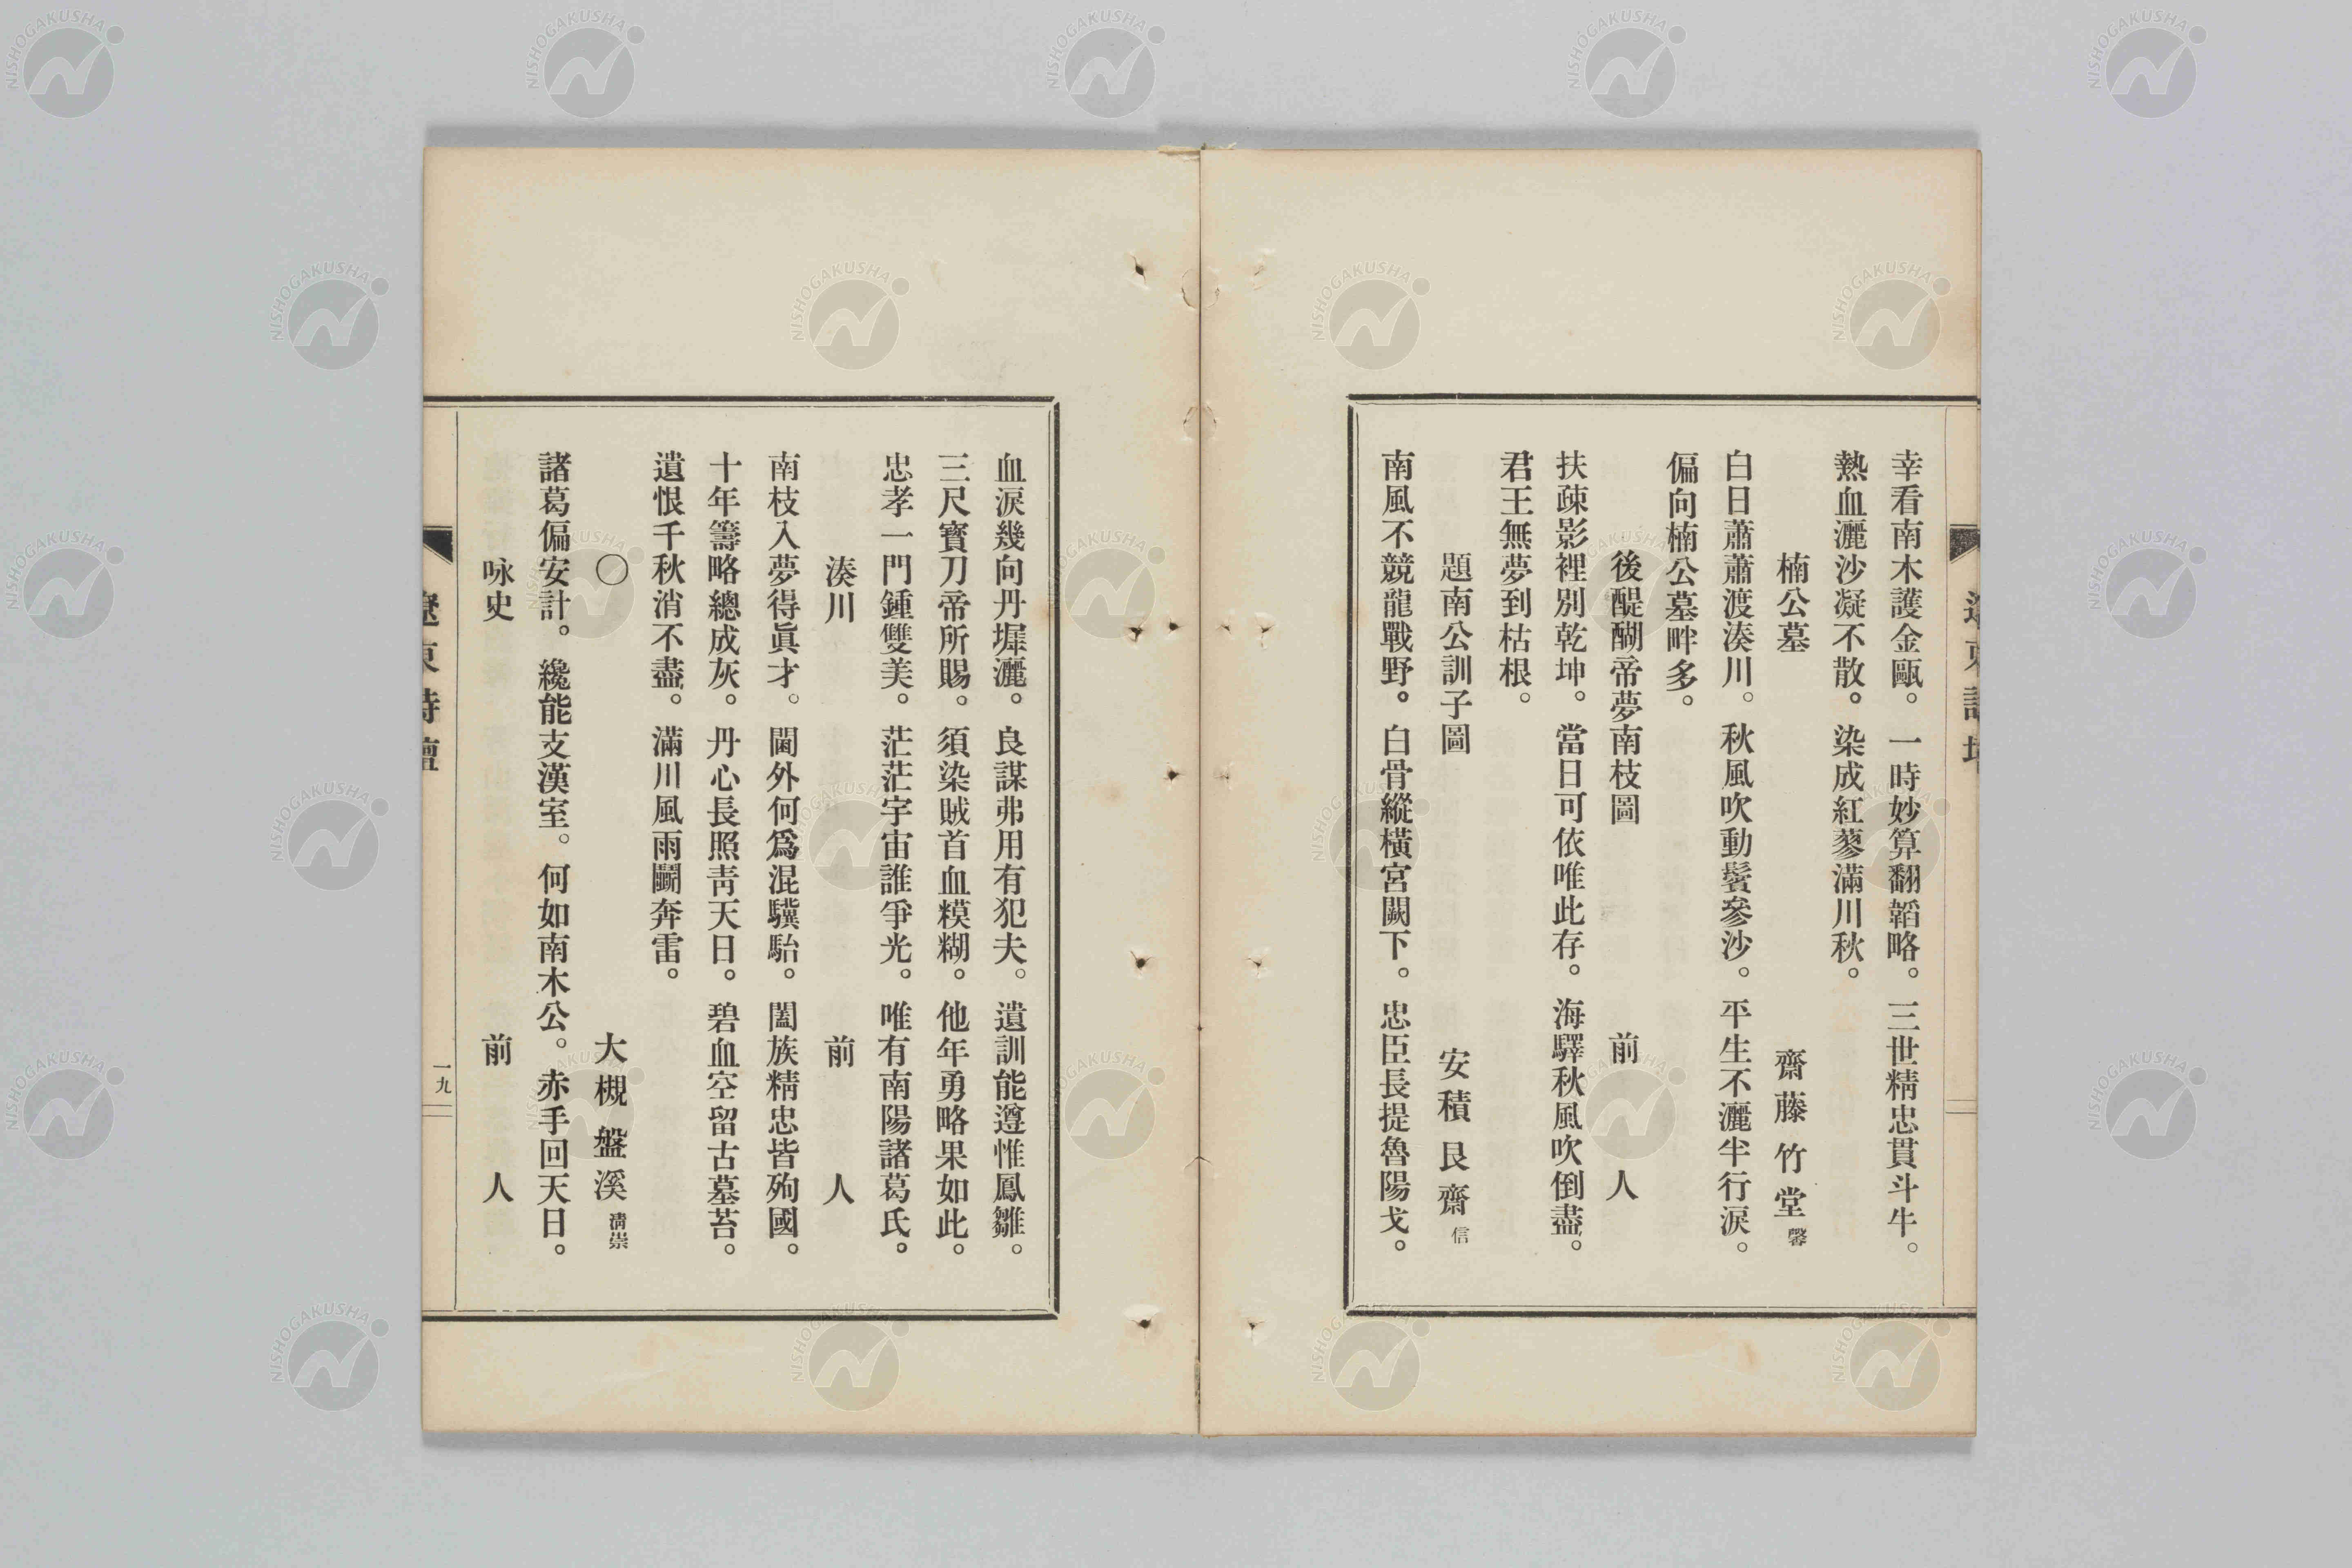 幸看南木護金甌。一時妙算翻韜略。三世精忠貫斗牛。
熱血灑沙凝不散。染成紅蓼滿川秋。
楠公墓　齋藤竹堂 馨
白日蕭蕭渡湊川。秋風吹動鬢參沙。平生不灑半行淚。
偏向楠公墓畔多。
後醍醐帝夢南枝圖　前人
扶疎影裡別乾坤。當日可依唯此存。海驛秋風吹倒盡。
君王無夢到枯根。
題南公訓子圖　安積艮齋 信
南風不競龍戰野。白骨縱橫宮闕下。忠臣長提魯陽戈。
血淚幾向丹墀灑。良謀弗用有犯夫。遺訓能遵惟鳳雛。
三尺寶刀帝所賜。須染賊首血糢糊。他年勇略果如此。
忠孝一門鍾雙美。茫茫宇宙誰爭光。唯有南陽諸葛氏。
湊川　前人
南枝入夢得眞才。閫外何爲混驥駘。闔族精忠皆殉國。
十年籌略總成灰。丹心長照靑天日。碧血空留古墓苔。
遺恨千秋消不盡。滿川風雨鬭奔雷。
〇　大槻盤溪 淸崇
諸葛偏安計。纔能支漢室。何如南木公。赤手回天日。
咏史　前人
遼東詩壇
一九
NISHOGAKUSHA